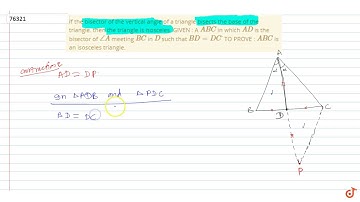 76321
If the bisector of the vertical angle of a triangle bisects the base of the
triangle, then the triangle is isosceles. GIVEN : A ABC in which AD is the
bisector of ∠A meeting BC in D such that BD = DC TO PROVE : ABC is
an isosceles triangle.
construction:
AD = DP
In △ADB and △PDC
BD = DC
A
1 2
B D C
P